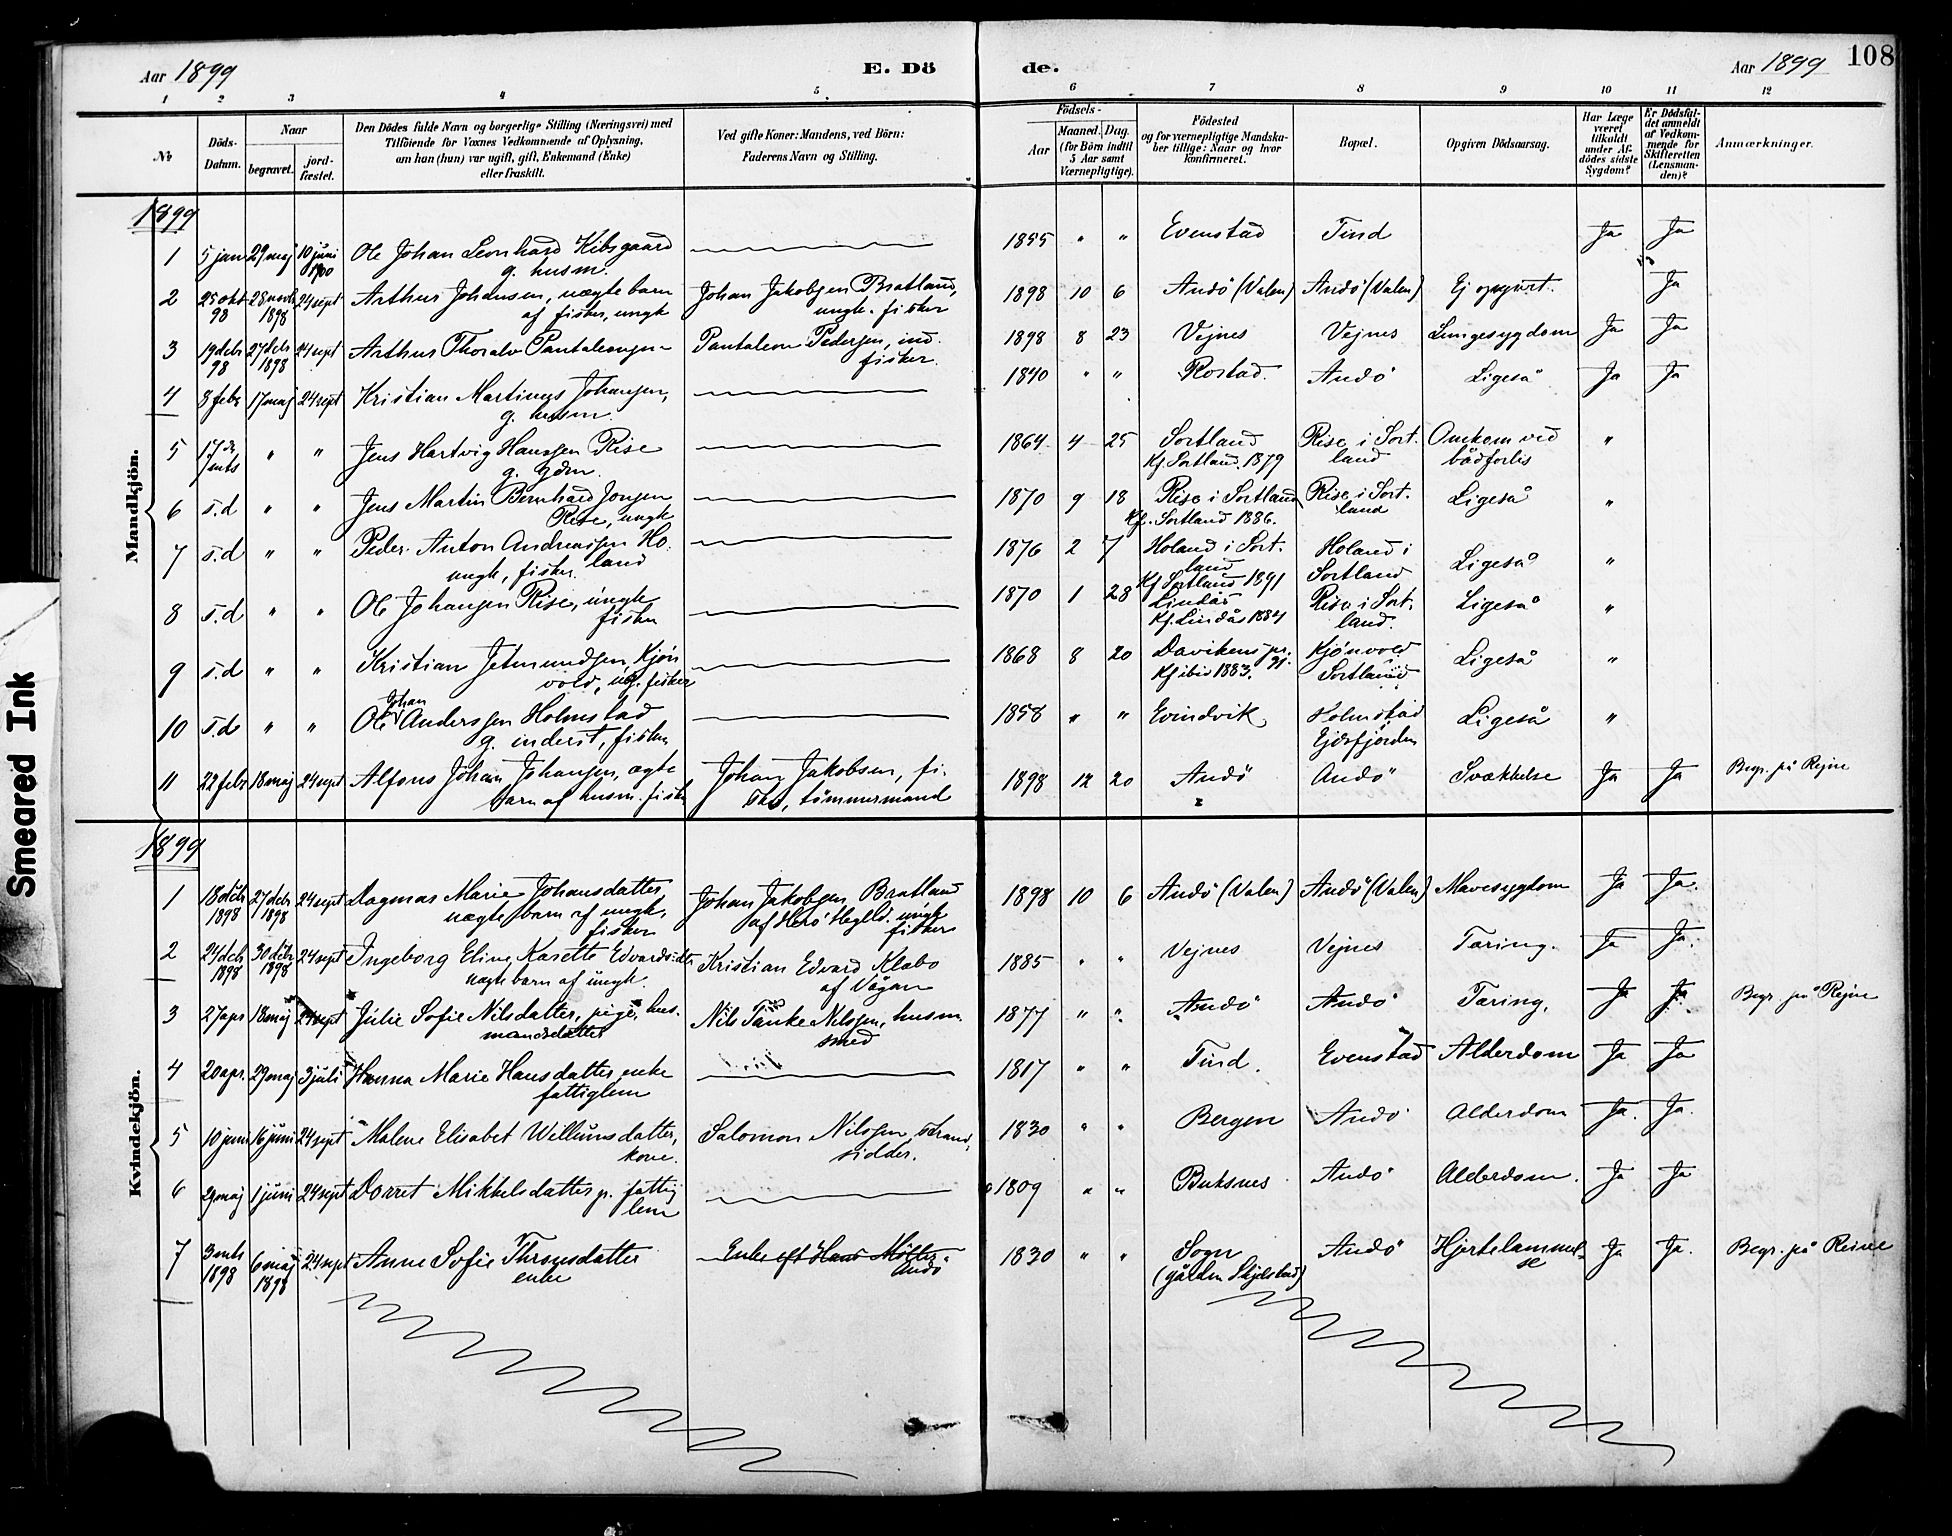 108
Aar 1899
E. Dö
de.
Aar 1899
1 2 3 4 5 6 7 8 9 10 11 12
No
Döds-Datum.
Naar
begravet.
jord-fæstet.
Den Dödes fulde Navn og borgerlige Stilling (Næringsvei) med
Tilföiende for Voxnes Vedkommende af Oplysning,
om han (hun) var ugift, gift, Enkemand (Enke)
eller fraskilt.
Ved gifte Koner: Mandens, ved Börn:
Faderens Navn og Stilling.
Födsels-
Aar
Maaned. Dag.
(for Börn indtil
5 Aar samt
Værnepligtige).
Födested
og for værnepligtige Mandska-
ber tillige: Naar og hvor
konfirmeret.
Bopæl.
Opgiven Dödsaarsag.
Har Læge
været
tilkaldt
under Af-
dödes sidste
Sygdom?
Er Dödsfal-
det anmeldt
af Vedkom-
mende for
Skifteretten
(Lensman-
den)?
Anmærkninger.
Mandkjön.
1899
1 5 jan 29 maj 10 juni 1900 Ole Johan Leonhard Kibsgaard 1855 " " Evenstad Tind Ja Ja
g. husm.
2 25 okt 98 28 novb 1898 24 sept Arthur Johansen, uægte barn Johan Jakobsen Bratland, 1898 10 6 Andö (Valen) Andö (Valen) Ej opgivet. Ja
af fisker, ungk ungk. fisker
3 19 decb 98 27 decb 1898 24 sept Arthur Thoralv Pantaleonsen Pantaleon Pedersen, ind. 1898 8 23 Vejnes Vejnes Lungesygdom Ja Ja
fisker.
4 8 febr 17 maj 24 sept Kristian Martinus Johansen, 1840 " " Rostad. Andö Ligeså Ja Ja
g. husm.
5 17de " " Jens Hartvig Hanssen Rise 1864 4 25 Sortland Rise i Sort. Omkom ved "
g. Kf. Sortland. 1879 land bådforlis
6 s.d " " Jens Martin Bernhard Jensen 1870 9 18 Rise i Sortland Rise i Sort. Ligeså "
Rise, ungk Kf. Sortland 1886. land
7 s.d " " Peder Anton Andreassen Ho. 1876 2 7 Holand i Sort. Holand i Ligeså "
ungk, fisker. land land Sortland
Kf Sortland 1891
8 s.d " " Ole Johansen Rise, ungk 1870 1 28 Lindås Rise i Sort. Ligeså "
fisker Kf. Lindås 1884 land.
9 s.d " " Kristian Jetmundsen, Kjön 1868 8 20 Davikens pr. Kjönvold Ligeså "
vold, ug. fisker Kf ibid 1883. Sortland
10 s.d " " Ole Johan Anderssen Holmstad 1858 " " Evindvik Holmstad Ligeså "
g. inderst, fisker Ejdsfjorden
11 22 febr 18 maj 24 sept Alfons Johan Johansen, ægte Johan Jakobsen, fi. 1898 12 20 Andö Andö Svækkelse Ja Ja Begr. på Rejne
barn af husm. fisker sker, tömmermand
Kvindekjön.
1899
1 18 decb 1898 27 decb 1898 24 sept Dagmar Marie Johansdatter, Johan Jakobsen Bratland 1898 10 6 Andö (Valen) Andö (Valen) Mavesygdom Ja Ja.
uægte barn af ungk, af Herö Heglld. ungk
fisker fisker
2 24 decb 1898 30 decb 1898 24 sept Ingeborg Eline Kasette Edvardsdtr Kristian Edvard Klabo 1885 " " Vejnes Vejnes Tæring. Ja Ja.
uægte barn af ungk. af Vågan
3 27 apr 18 maj 24 sept Julie Sofie Nilsdatter, pige, hus. Nils Tanke Nilssen, husm. 1877 " " Andö Andö Tæring, Ja Ja Begr. på Rejne
mandsdatter smed
4 20 apr. 29 maj 3 juli Hanna Marie Hansdatter enke 1817 " " Tind. Evenstad Alderdom Ja Ja
fattiglem
5 10 juni 16 juni 24 sept Malene Elisabet Willumsdatter, Salomon Nilssen, strand, 1830 " " Bergen Andö Alderdom Ja. Ja.
kone. sidder.
6 29 maj 1 juni 24 sept Dorret Mikkelsdatter p. fattig 1809 " " Buksnes Andö Alderdom. Ja Ja
lem
7 3 1898 6 maj 1898 24 sept Anne Sofie Thronsdatter Enke eft Hans Möller 1830 " " Sogn Andö Hjertelammel. Ja Ja. Begr. på Reine
enke Andö (gården Skjelstad) se
Smeared Ink